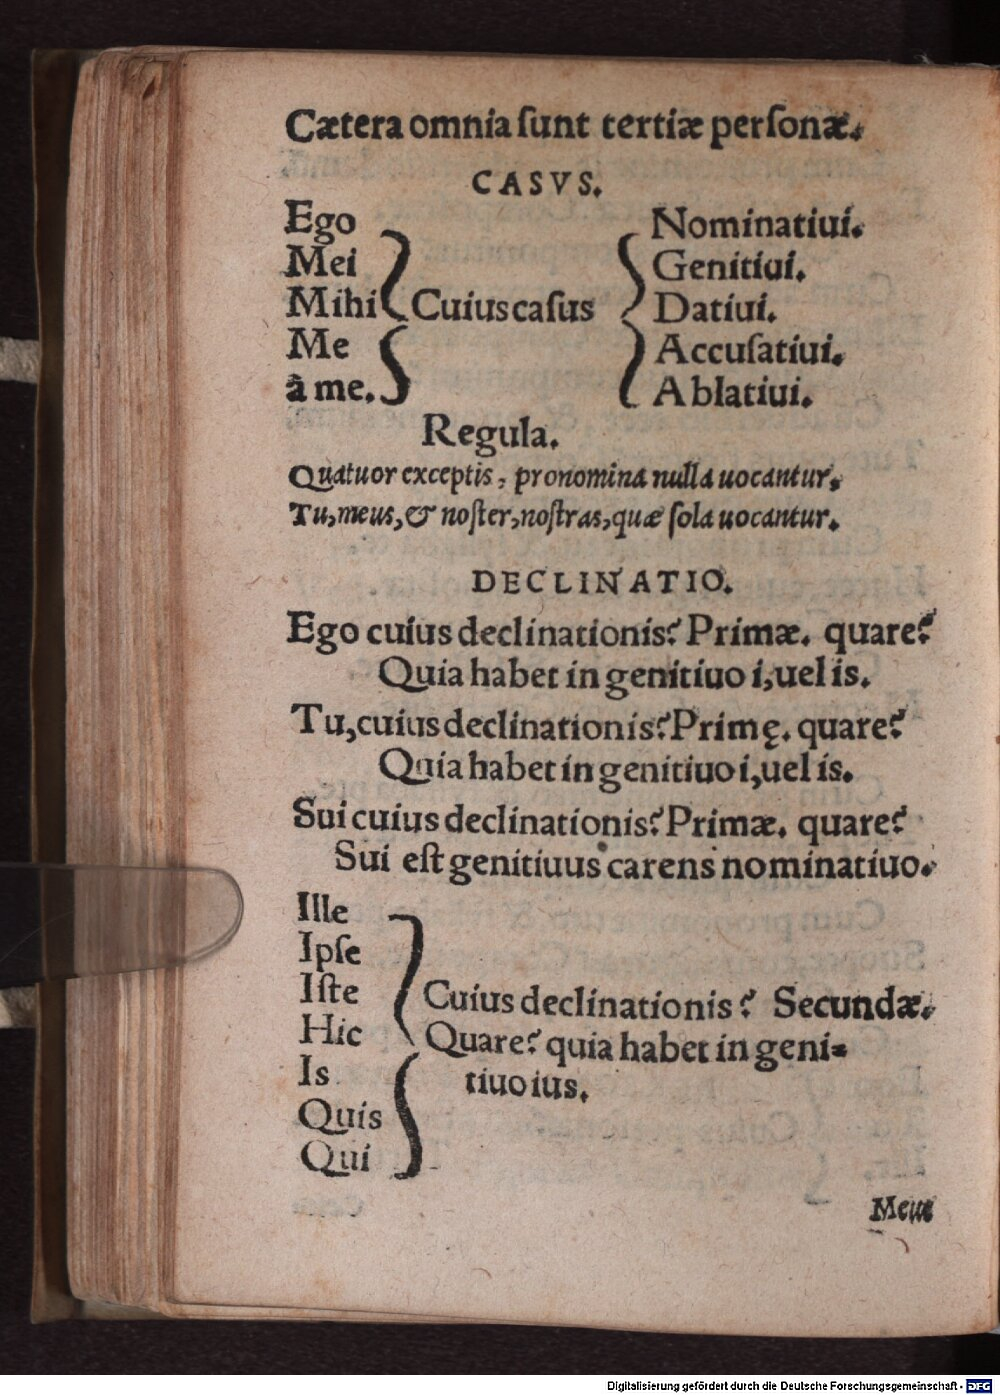 Cætera omnia ſunt tertiæ perſonæ.
CASVS.
Ego
Mei
Mihi
Me
à me.
Cuius caſus
Nominatiui.
Genitiui.
Datiui.
Accuſatiui.
Ablatiui.
Regula.
Quatuor exceptis, pronomina nulla uocantur.
Tu, meus, & noſter, noſtras, quæ ſola uocantur.
DECLINATIO.
Ego cuius declinationis? Primæ. quare?
Quia habet in genitiuo i, uel is.
Tu, cuius declinationis? Primę. quare?
Quia habet in genitiuo i, uel is.
Sui cuius declinationis? Primæ. quare?
Sui eſt genitiuus carens nominatiuo.
Ille
Ipſe
Iſte
Hic
Is
Quis
Qui
Cuius declinationis? Secundæ.
Quare? quia habet in geni-
tiuo ius.
Digitalisierung gefördert durch die Deutsche Forschungsgemeinschaft - DFG